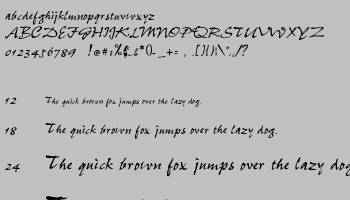 abcdefghijklmnopqrstuvwxyz
ABCDEFGHIJKLMNOPQRSTUVWXYZ
0123456789
12 The quick brown fox jumps over the lazy dog.
18 The quick brown fox jumps over the lazy dog.
24 The quick brown fox jumps over the lazy dog